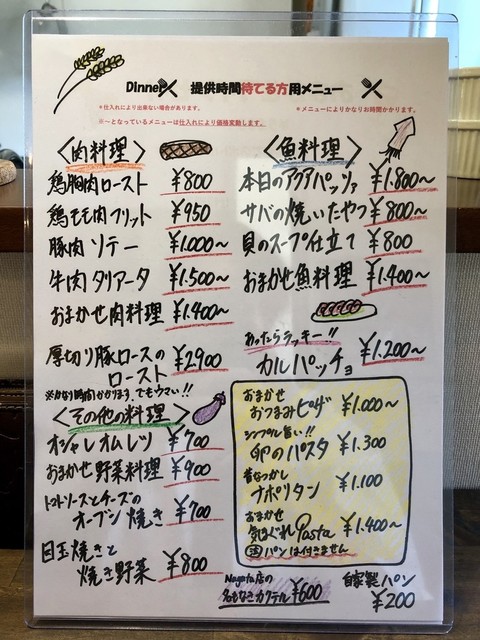 Dinner 提供時間待てる方用メニュー
*仕入れにより出来ない場合があります。
*メニューによりかなりお時間かかります。
※〜となっているメニューは仕入れにより価格変動します。
〈肉料理〉
鶏胸肉ロースト ¥800
鶏モモ肉フリット ¥950
豚肉ソテー ¥1.000〜
牛肉タリアータ ¥1.500〜
おまかせ肉料理 ¥1.400〜
厚切り豚ロースの
ロースト ¥2900
※かなり時間かかります。でもウマい!!
〈その他の料理〉
オシャレオムレツ ¥700
おまかせ野菜料理 ¥900
トマトソースとチーズの
オーブン焼き ¥700
目玉焼きと
焼き野菜 ¥800
〈魚料理〉
本日のアクアパッツァ ¥1.800〜
サバの焼いたやつ ¥800〜
貝のスープ仕立て ¥800
おまかせ魚料理 ¥1.400〜
あったらラッキー!!
カルパッチョ ¥1.200〜
おまかせ
おつまみピザ ¥1.000〜
シンプル旨い!!
卵のパスタ ¥1.300
昔なつかし
ナポリタン ¥1.100
おまかせ
気まぐれPasta ¥1.400〜
注 パンは付きません
Nagata店の
名もなきカクテル ¥600
自家製パン
¥200